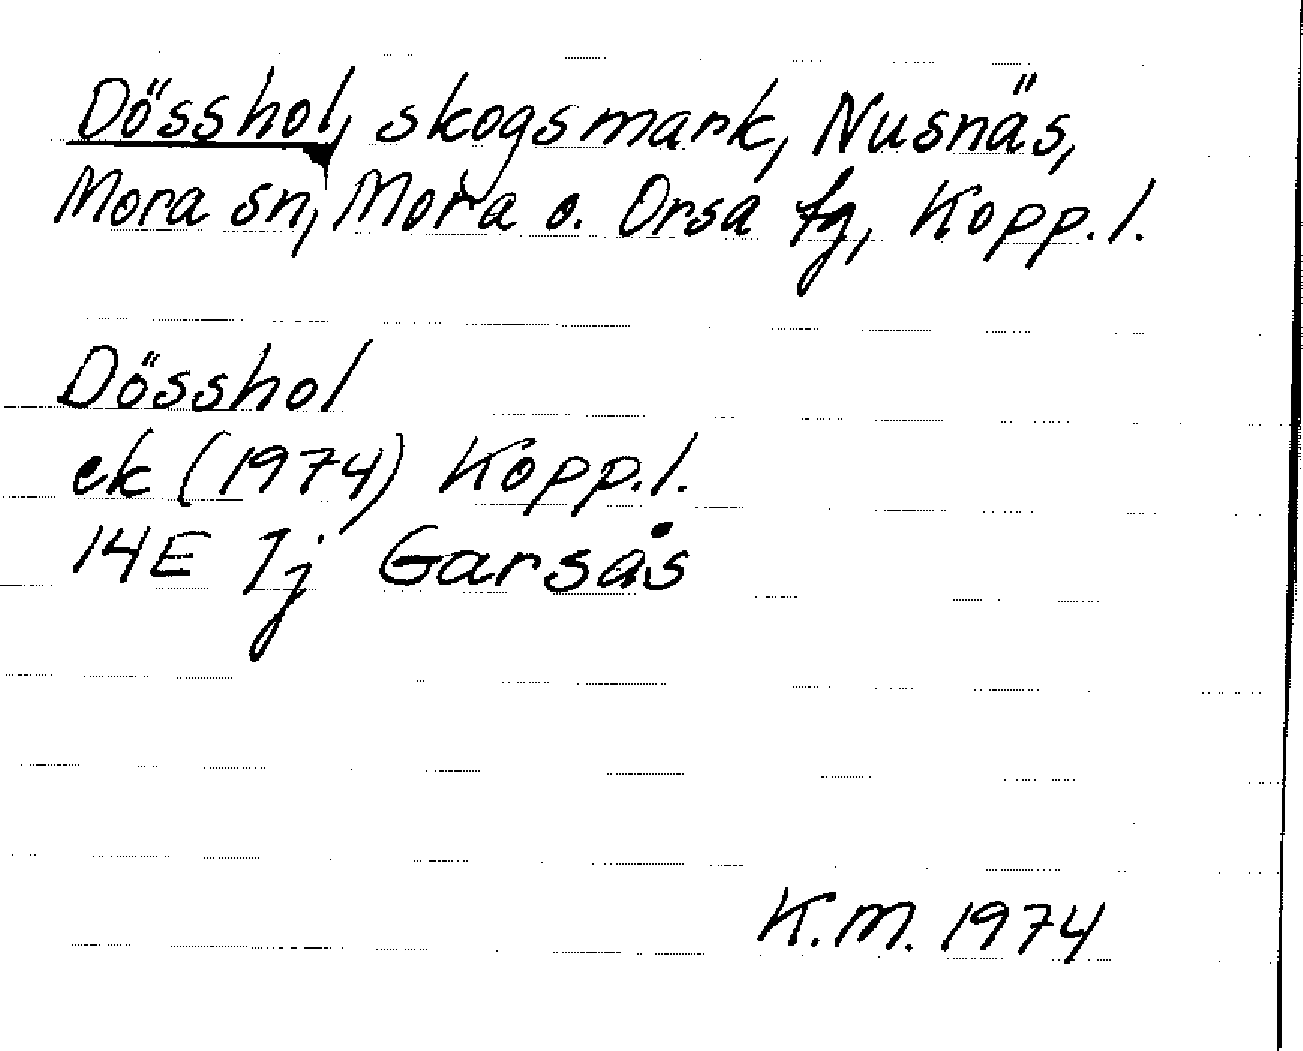 Dösshol, skogsmark, Nusnäs,
Mora sn, Mora o. Orsa tg, Kopp. l.
Dösshol
ek (1974) Kopp. l.
14E 7j Garsås
K.M. 1974